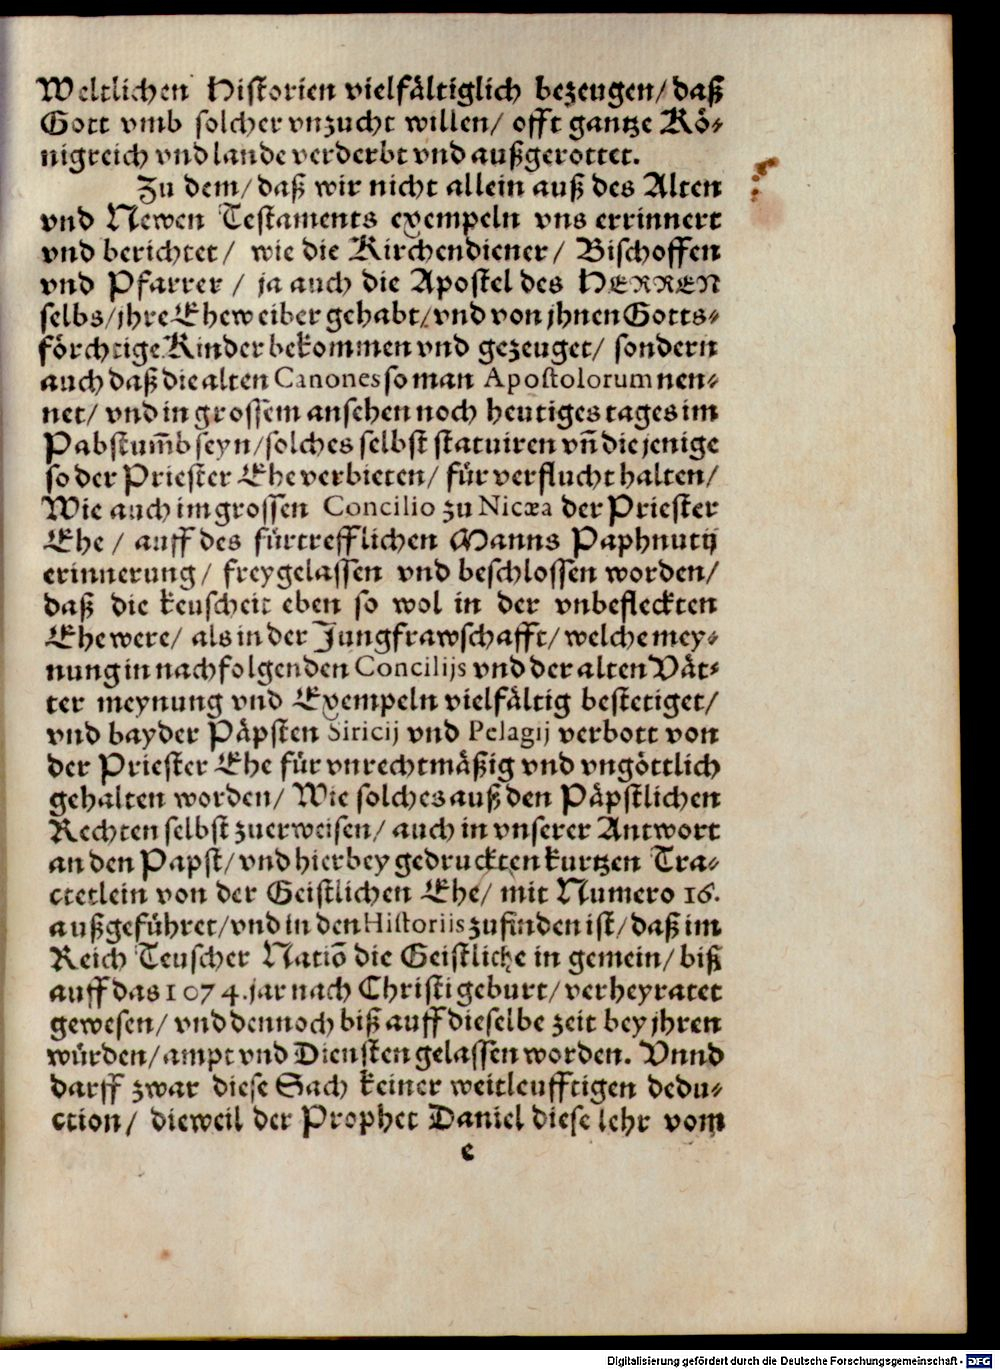 Weltlichen Historien vielfältiglich bezeugen/ daß
Gott vmb solcher vnzucht willen/ offt gantze Kö-
nigreich vnd lande verderbt vnd außgerottet.
Zu dem/ daß wir nicht allein auß des Alten
vnd Newen Testaments exempeln vns errinnert
vnd berichtet/ wie die Kirchendiener/ Bischoffen
vnd Pfarrer / ja auch die Apostel des HERREN
selbs/ jhre Eheweiber gehabt/ vnd von jhnen Gotts-
förchtige Kinder bekommen vnd gezeuget/ sondern
auch daß die alten Canones so man Apostolorum nen-
net/ vnd in grossem ansehen noch heutiges tages im
Pabstum̃b seyn/ solches selbst statuiren vñ die jenige
so der Priester Ehe verbieten/ für verflucht halten/
Wie auch im grossen Concilio zu Nicæa der Priester
Ehe / auff des fürtrefflichen Manns Paphnutij
erinnerung/ freygelassen vnd beschlossen worden/
daß die keuscheit eben so wol in der vnbefleckten
Ehe were/ als in der Jungfrawschafft/ welche mey-
nung in nachfolgenden Concilijs vnd der alten Vät-
ter meynung vnd Exempeln vielfältig bestetiget/
vnd bayder Päpsten Siricij vnd Pelagij verbott von
der Priester Ehe für vnrechtmäßig vnd vngöttlich
gehalten worden/ Wie solches auß den Päpstlichen
Rechten selbst zuerweisen/ auch in vnserer Antwort
an den Papst/ vnd hierbey gedruckten kurtzen Tra-
ctetlein von der Geistlichen Ehe/ mit Numero 16.
außgeführet/ vnd in den Historiis zufinden ist/ daß im
Reich Teuscher Natiō die Geistliche in gemein/ biß
auff das 1074. jar nach Christi geburt/ verheyratet
gewesen/ vnd dennoch biß auff dieselbe zeit bey jhren
würden/ ampt vnd Diensten gelassen worden. Vnnd
darff zwar diese Sach keiner weitleufftigen dedu-
ction/ dieweil der Prophet Daniel diese lehr vom
c
Digitalisierung gefördert durch die Deutsche Forschungsgemeinschaft - DFG